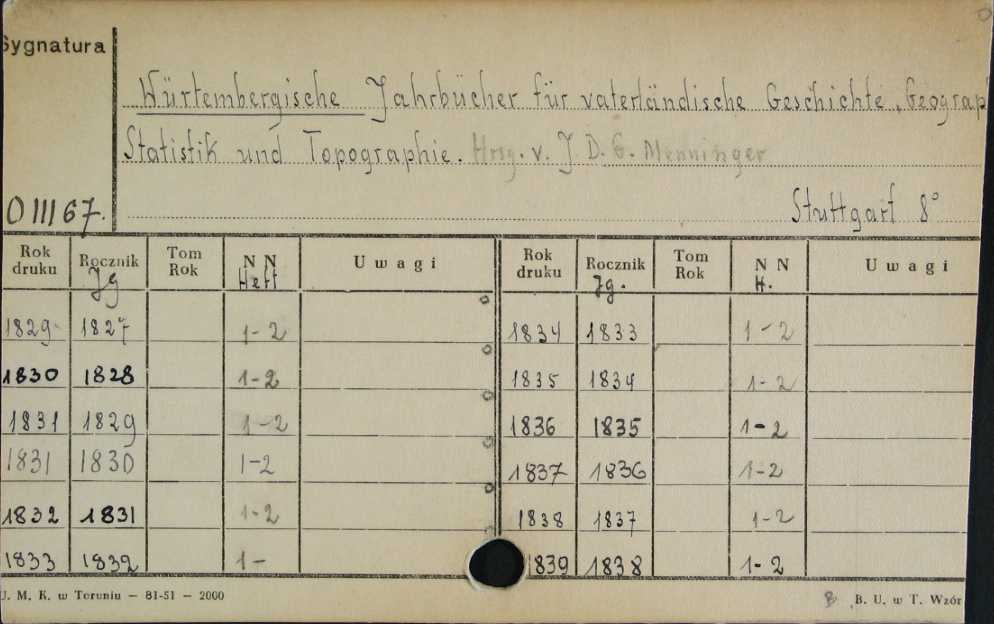 Sygnatura
Würtembergische Jahrbücher für vaterländische Geschichte, Geograp
Statistik und Topographie. Hrsg. v. J. D. G. Menninger
O III 67.
Stuttgart 8°
Rok druku Rocznik Tom Rok N N Uwagi Rok druku Rocznik Tom Rok N N Uwagi
Jg Heft Jg. H.
1829 1827 1-2 1834 1833 1-2
1830 1828 1-2 1835 1834 1-2
1831 1829 1-2 1836 1835 1-2
1831 1830 1-2 1837 1836 1-2
1832 1831 1-2 1838 1837 1-2
1833 1832 1- 1839 1838 1-2
U. M. K. w Toruniu — 81-51 — 2000 B. U. w T. Wzór